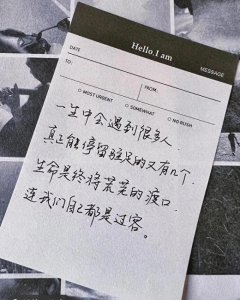 Hello, I am
DATE
MESSAGE
TO:
FROM:
MOST URGENT
SOMEWHAT
NO RUSH
一生中会遇到很多人
真正能停留驻足的又有几个
生命是终将荒芜的渡口
连我们自己都是过客。